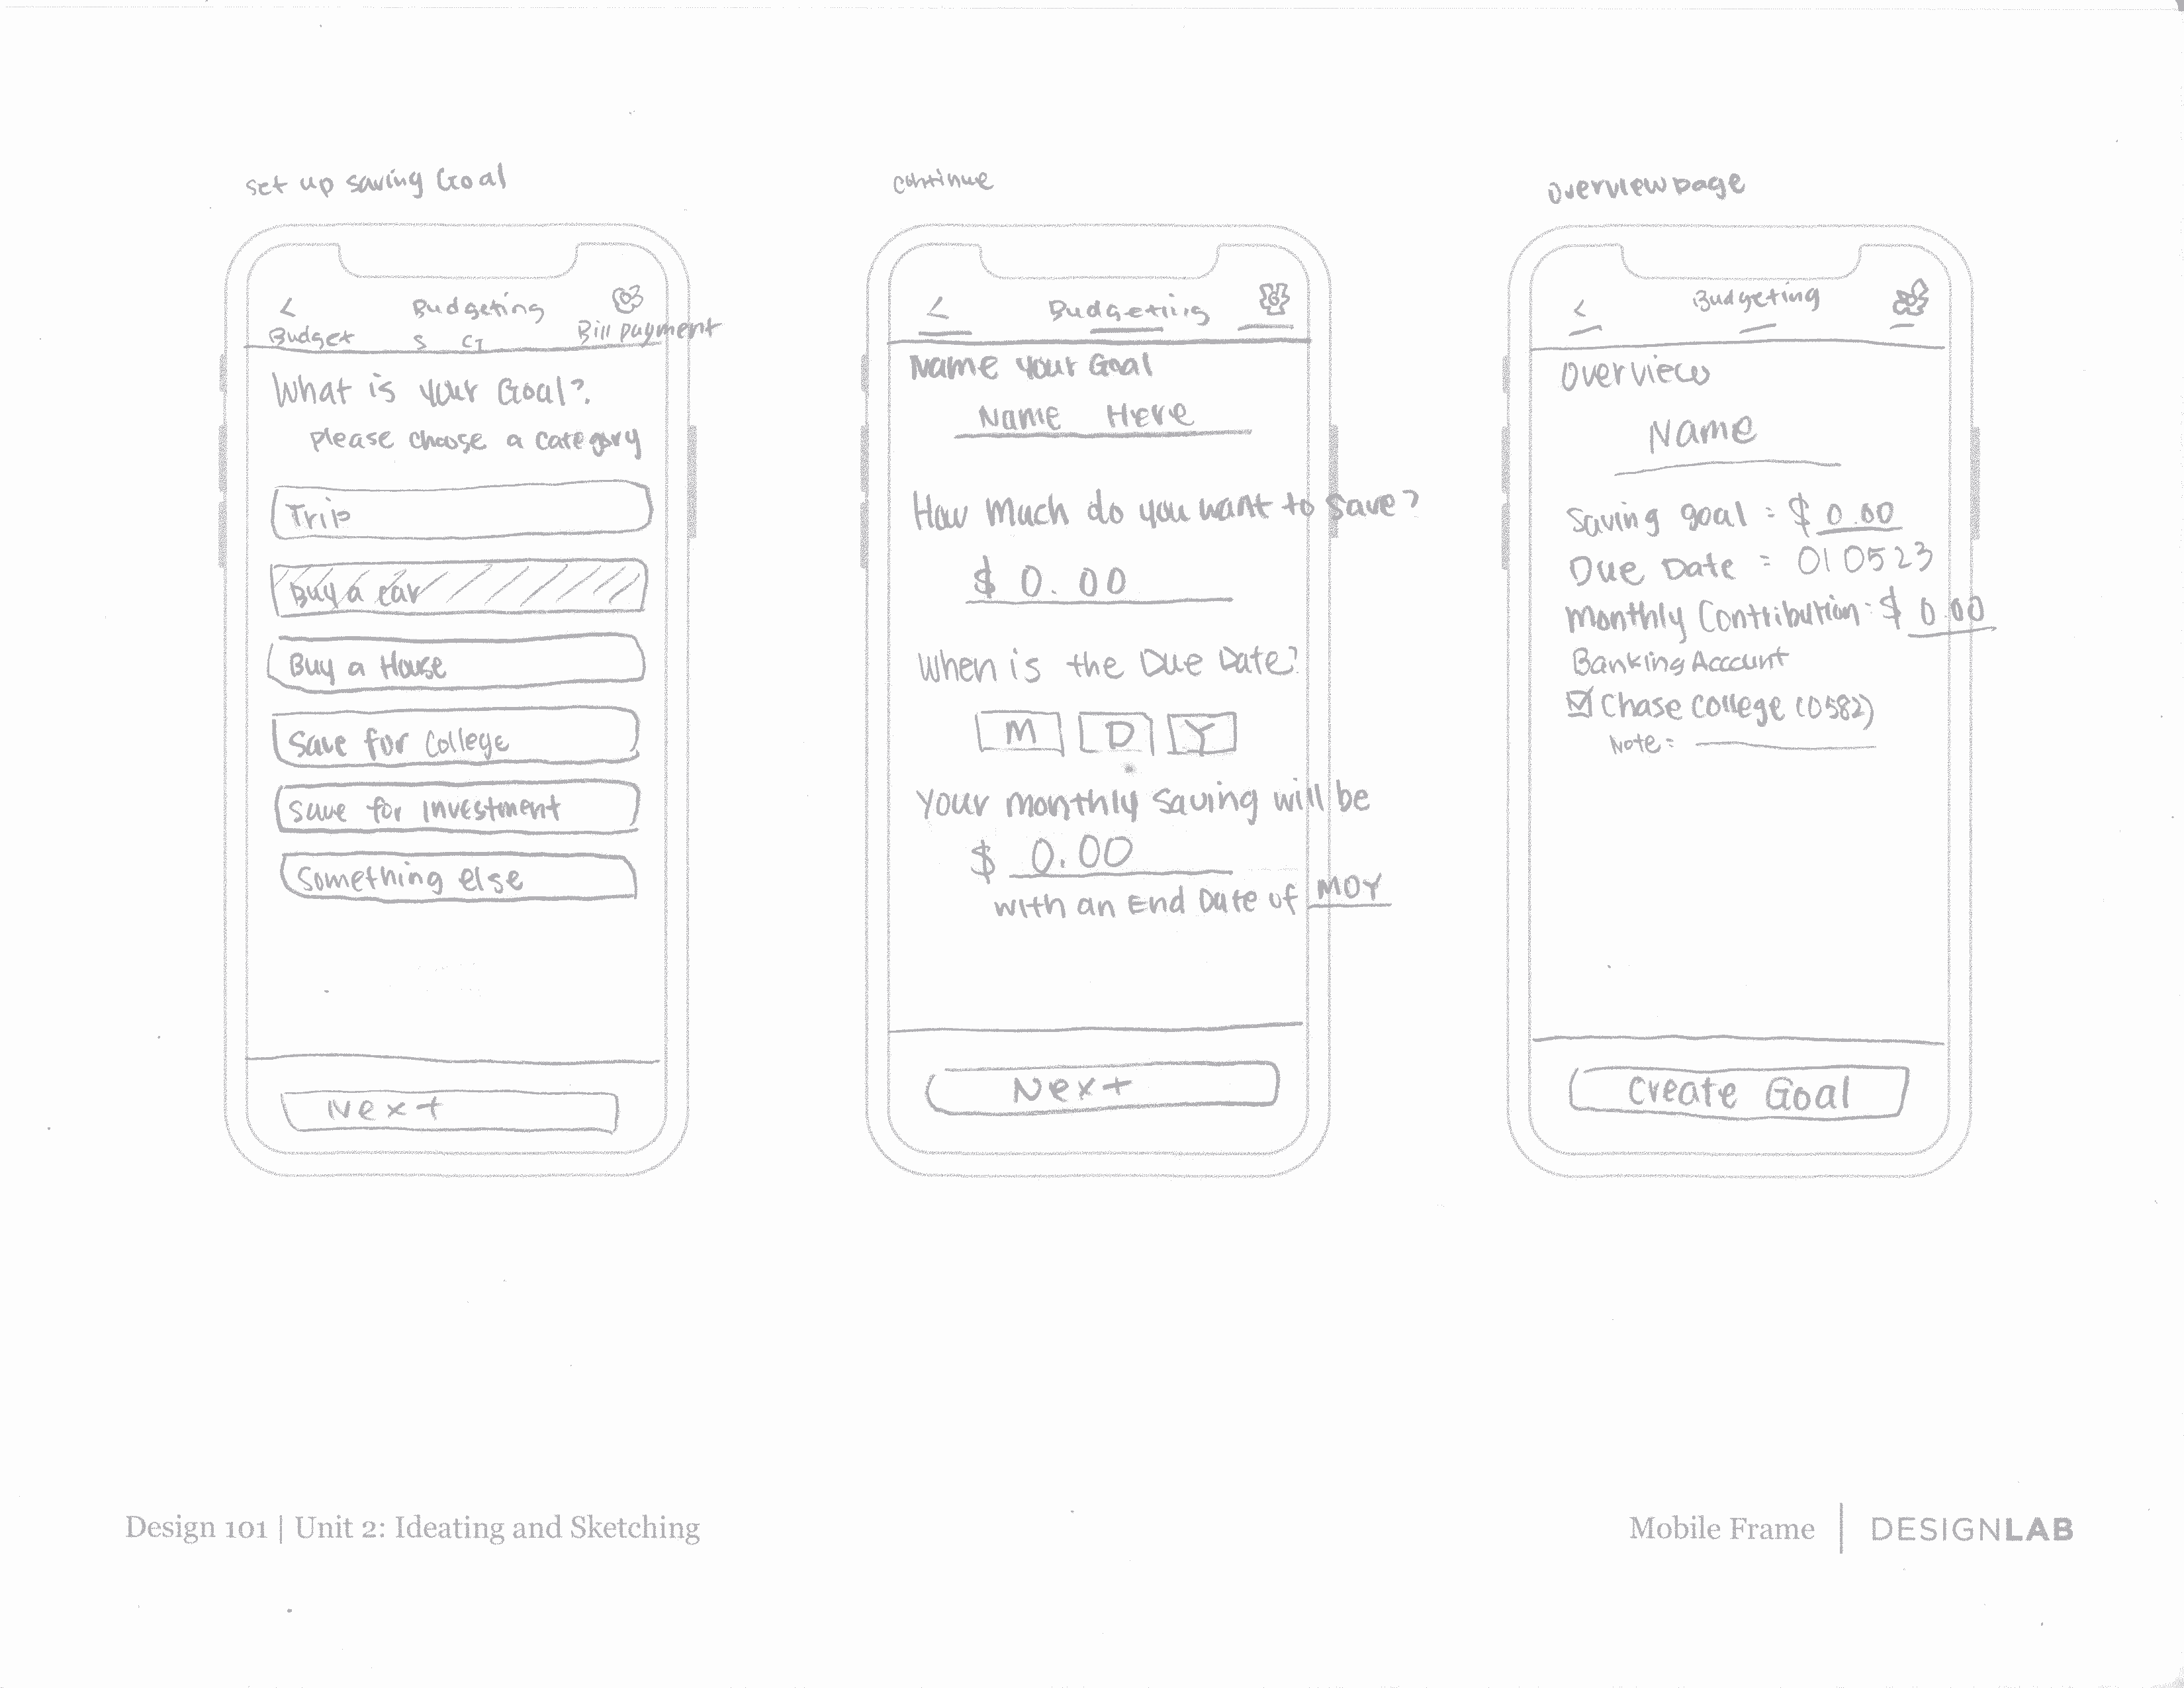 set up saving Goal
<
Budgeting
Budget S G Bill payment
What is your Goal?
please choose a category
Trip
Buy a car
Buy a House
Save for College
Save for Investment
Something else
Next
continue
<
Budgeting
Name your Goal
Name Here
How much do you want to save?
$ 0.00
When is the Due Date?
M D Y
Your monthly saving will be
$ 0.00
with an End Date of MDY
Next
overview page
<
Budgeting
Overview
Name
Saving goal = $ 0.00
Due Date = 010523
Monthly Contribution: $ 0.00
Banking Account
Chase College (0582)
Note:
Create Goal
Design 101 | Unit 2: Ideating and Sketching
Mobile Frame | DESIGNLAB